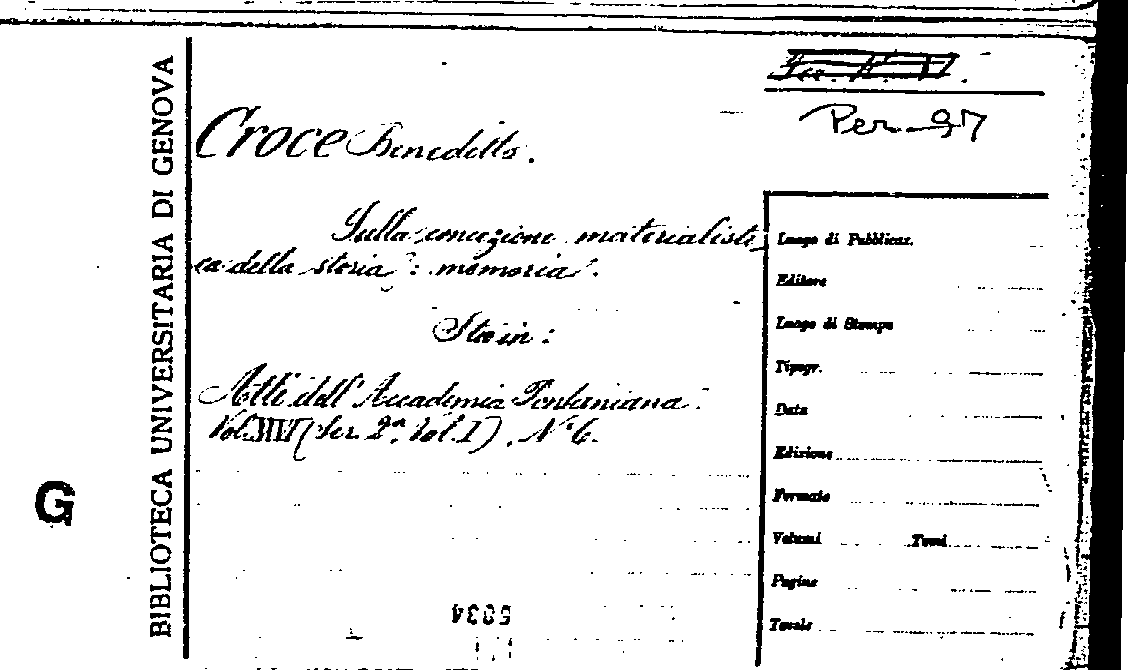 BIBLIOTECA UNIVERSITARIA DI GENOVA
G
Per 97
Croce Benedetto.
Sulla concezione materialisti
ca della storia: memoria.
Sta in:
Atti dell'Accademia Pontaniana.
Vol. (Ser. 2ª. Vol. I), N° 6.
Luogo di Pubblicaz.
Editore
Luogo di Stampa
Tipogr.
Data
Edizione
Formato
Volumi Tomi
Pagine
Tavole
5034